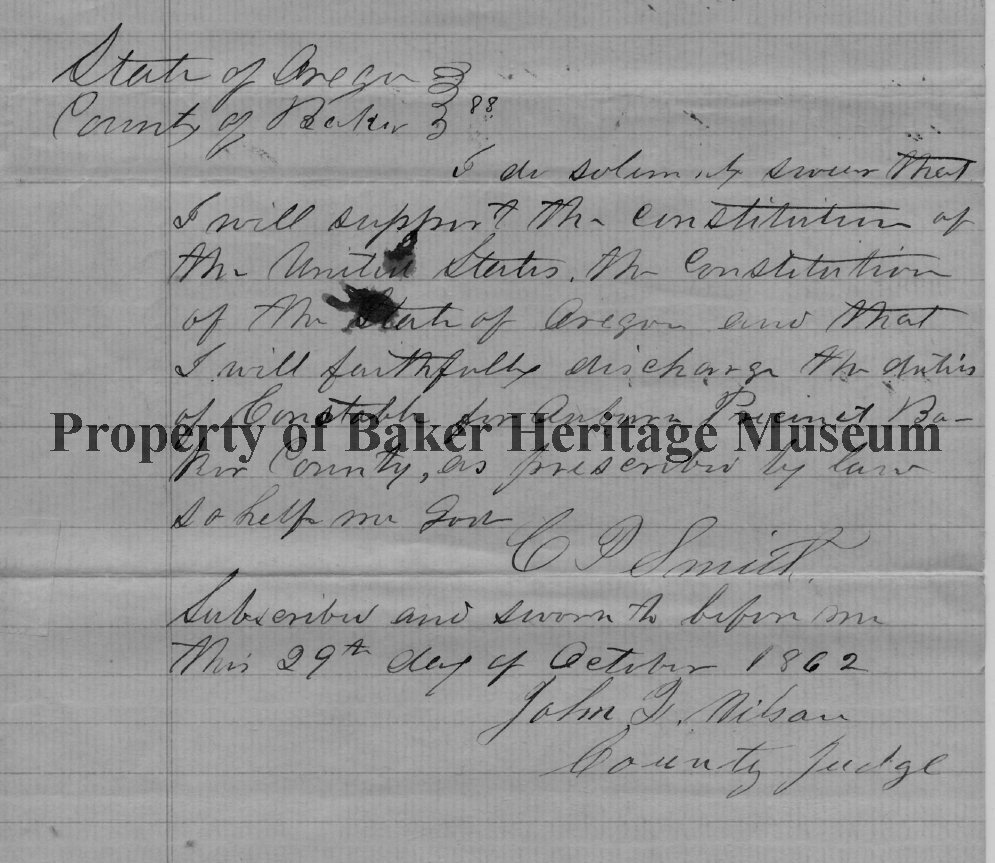 State of Oregon
County of Baker ss
I do solemnly swear that
I will support the Constitution of
the United States, the Constitution
of the State of Oregon and that
I will faithfully discharge the duties
of Constable for Auburn Precinct Ba-
Property of Baker Heritage Museum
ker County, as prescribed by law
so help me God
C P Smith.
Subscribed and sworn to before me
this 29th day of October 1862
John Q. Wilson
County Judge